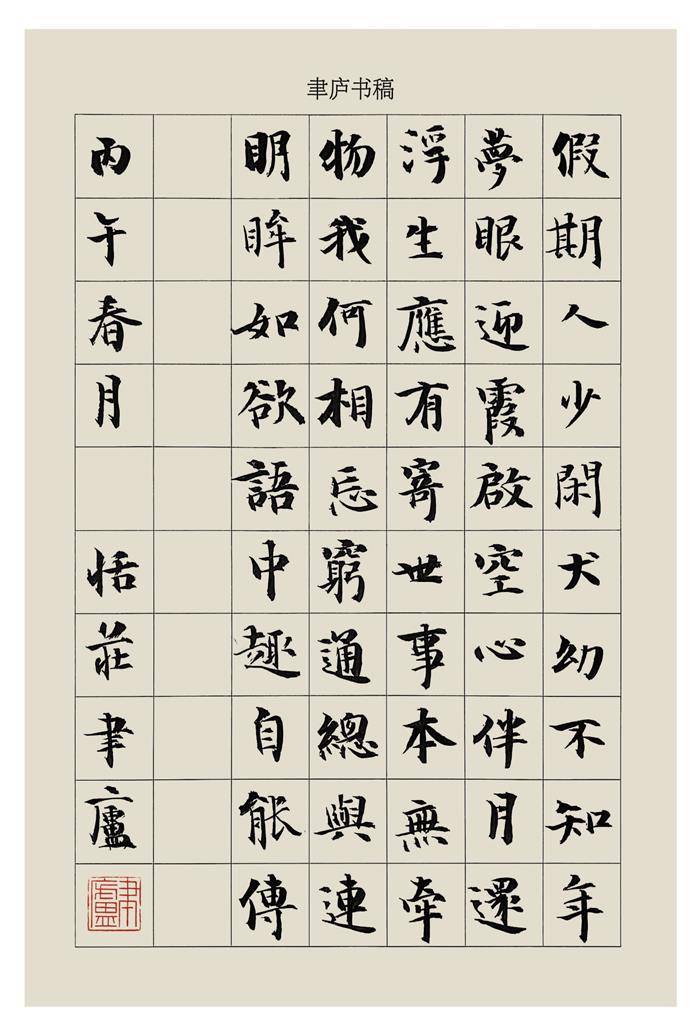 聿庐书稿
假期人少閑犬幼不知年
夢眼迎霞啟空心伴月還
浮生應有寄世事本無牽
物我何相忘窮通總與連
明眸如欲語中趣自能傳
丙午春月 恬莊聿廬
聿廬